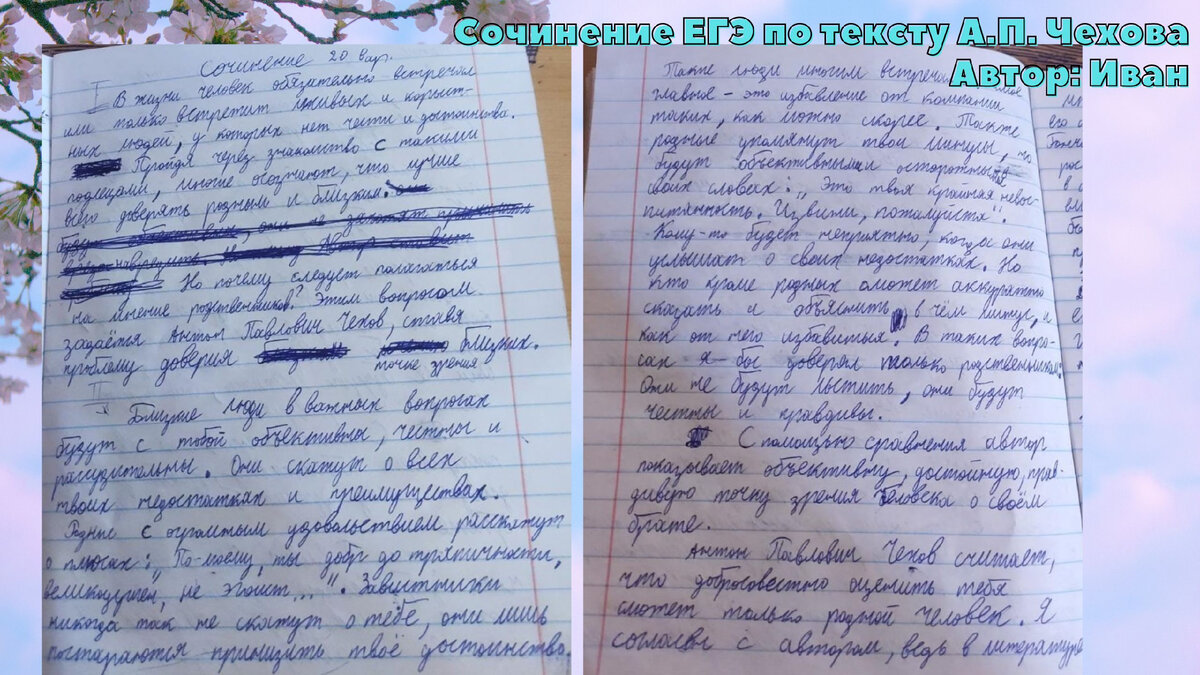 Сочинение ЕГЭ по тексту А.П. Чехова
Автор: Иван
Сочинение 20 вар.
I
В жизни человек обязательно встречал
или только встретит лживых и корыст-
ных людей, у которых нет чести и достоинства.
Пройдя через знакомство с такими
подлецами, многие осознают, что лучше
всего доверять родным и близким.
Но почему следует полагаться
на мнение родственников? Этим вопросом
задаётся Антон Павлович Чехов, ставя
проблему доверия точке зрения близких.
II
Близкие люди в важных вопросах
будут с тобой объективны, честны и
рассудительны. Они скажут о всех
твоих недостатках и преимуществах.
Родные с огромным удовольствием расскажут
о плюсах: „По-моему, ты добр до тряпичности,
великодушен, не эгоист...". Завистники
никогда так не скажут о тебе, они лишь
постараются принизить твоё достоинство.
Такие люди многим встречал
главное – это избавление от компании
таких, как можно скорее. Также
родные упомянут твои минусы, но
будут объективными и осторожны в
своих словах: „Это твоя крайняя невос-
питанность. Извини, пожалуйста".
Кому-то будет неприятно, когда они
услышат о своих недостатках. Но
кто кроме родных сможет аккуратно
сказать и объяснить, в чём минус, и
как от него избавиться. В таких вопро-
сах я бы доверял только родственникам:
Они не будут льстить, они будут
честны и правдивы.
С помощью сравнения автор
показывает объективную, достойную, прав-
дивую точку зрения человека о своём
брате.
Антон Павлович Чехов считает,
что добросовестно оценить тебя
сможет только родной человек. Я
согласен с автором, ведь в литературе